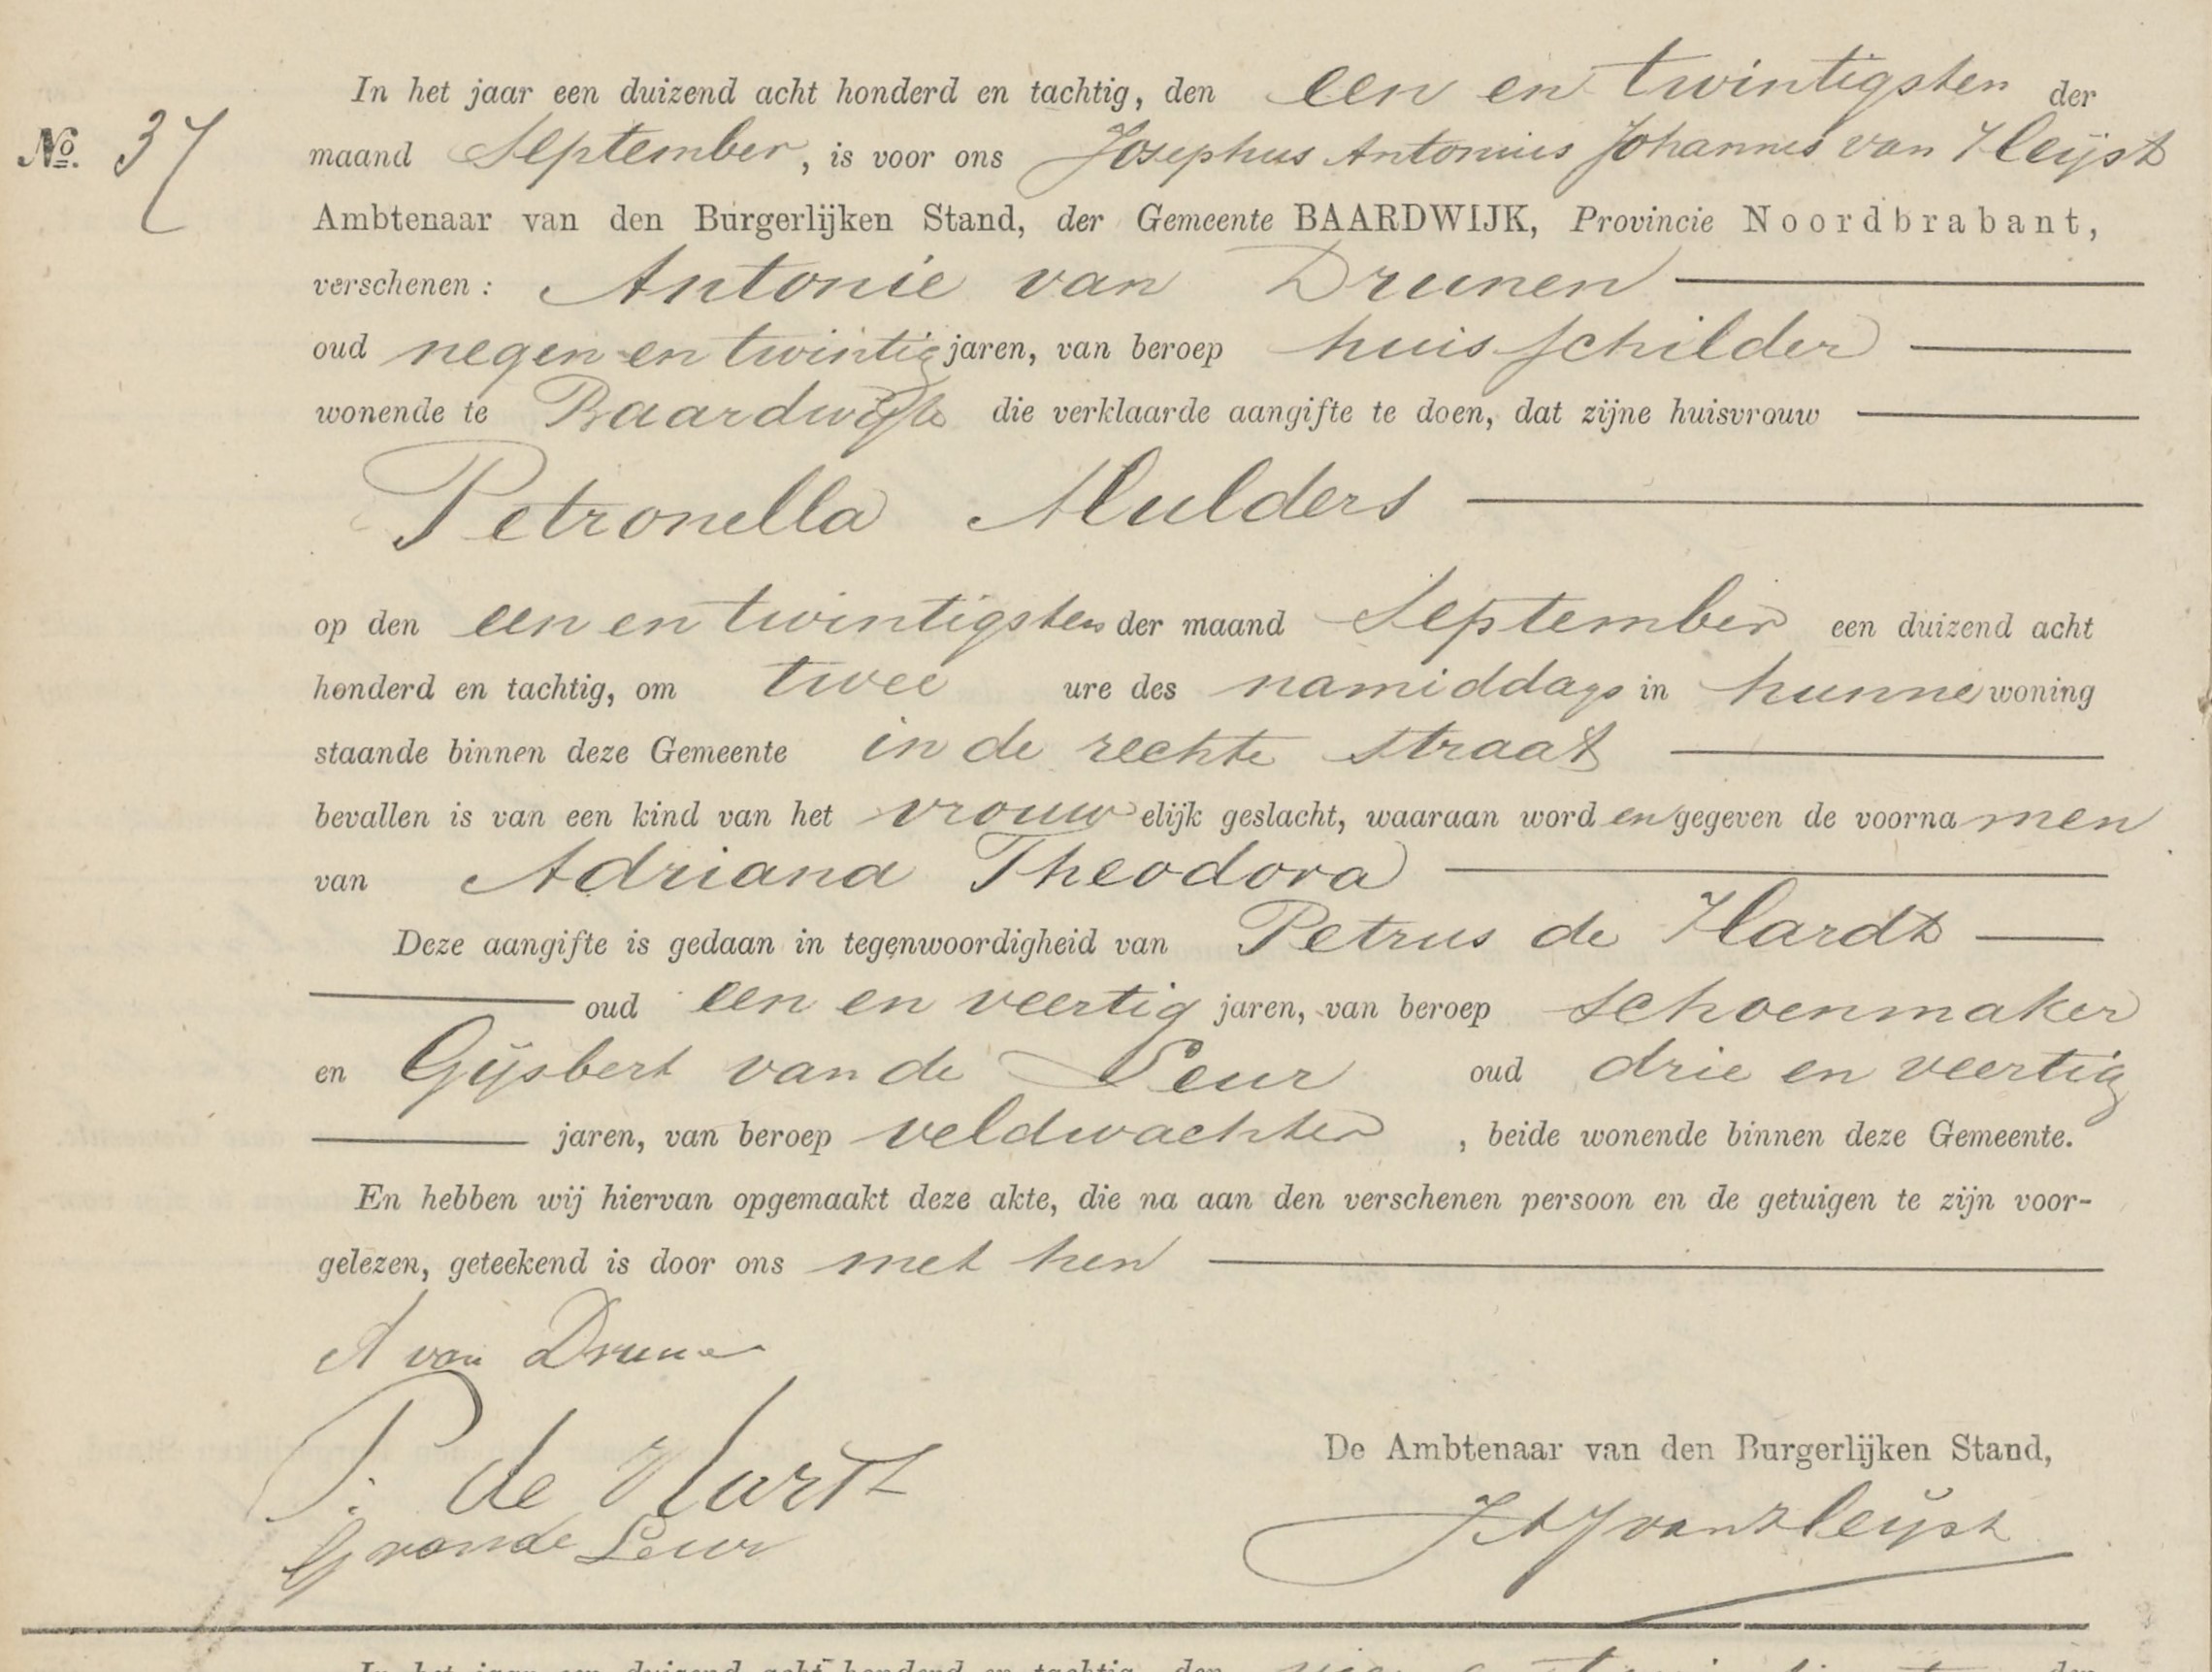 In het jaar een duizend acht honderd en tachtig, den een en twintigsten der
No. 37
maand September, is voor ons Josephus Antonius Johannes van Heijst
Ambtenaar van den Burgerlijken Stand, der Gemeente BAARDWIJK, Provincie Noordbrabant,
verschenen: Antonie van Drunen
oud negen en twintig jaren, van beroep huisschilder
wonende te Baardwijk die verklaarde aangifte te doen, dat zijne huisvrouw
Petronella Mulders
op den een en twintigsten der maand September een duizend acht
honderd en tachtig, om twee ure des namiddags in hunne woning
staande binnen deze Gemeente in de rechte straat
bevallen is van een kind van het vrouwelijk geslacht, waaraan worden gegeven de voornamen
van Adriana Theodora
Deze aangifte is gedaan in tegenwoordigheid van Petrus de Hardt
oud een en veertig jaren, van beroep schoenmaker
en Gijsbert van de Leur oud drie en veertig
jaren, van beroep veldwachter, beide wonende binnen deze Gemeente.
En hebben wij hiervan opgemaakt deze akte, die na aan den verschenen persoon en de getuigen te zijn voor-
gelezen, geteekend is door ons met hen
A van Drunen
P. de Hardt
De Ambtenaar van den Burgerlijken Stand,
G van de Leur
JAJ van Heijst